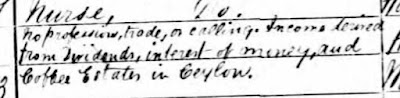 Nurse, Do.
No profession, trade, or calling. Income derived
from Dividends, interest of money, and
Coffee Estates in Ceylon.